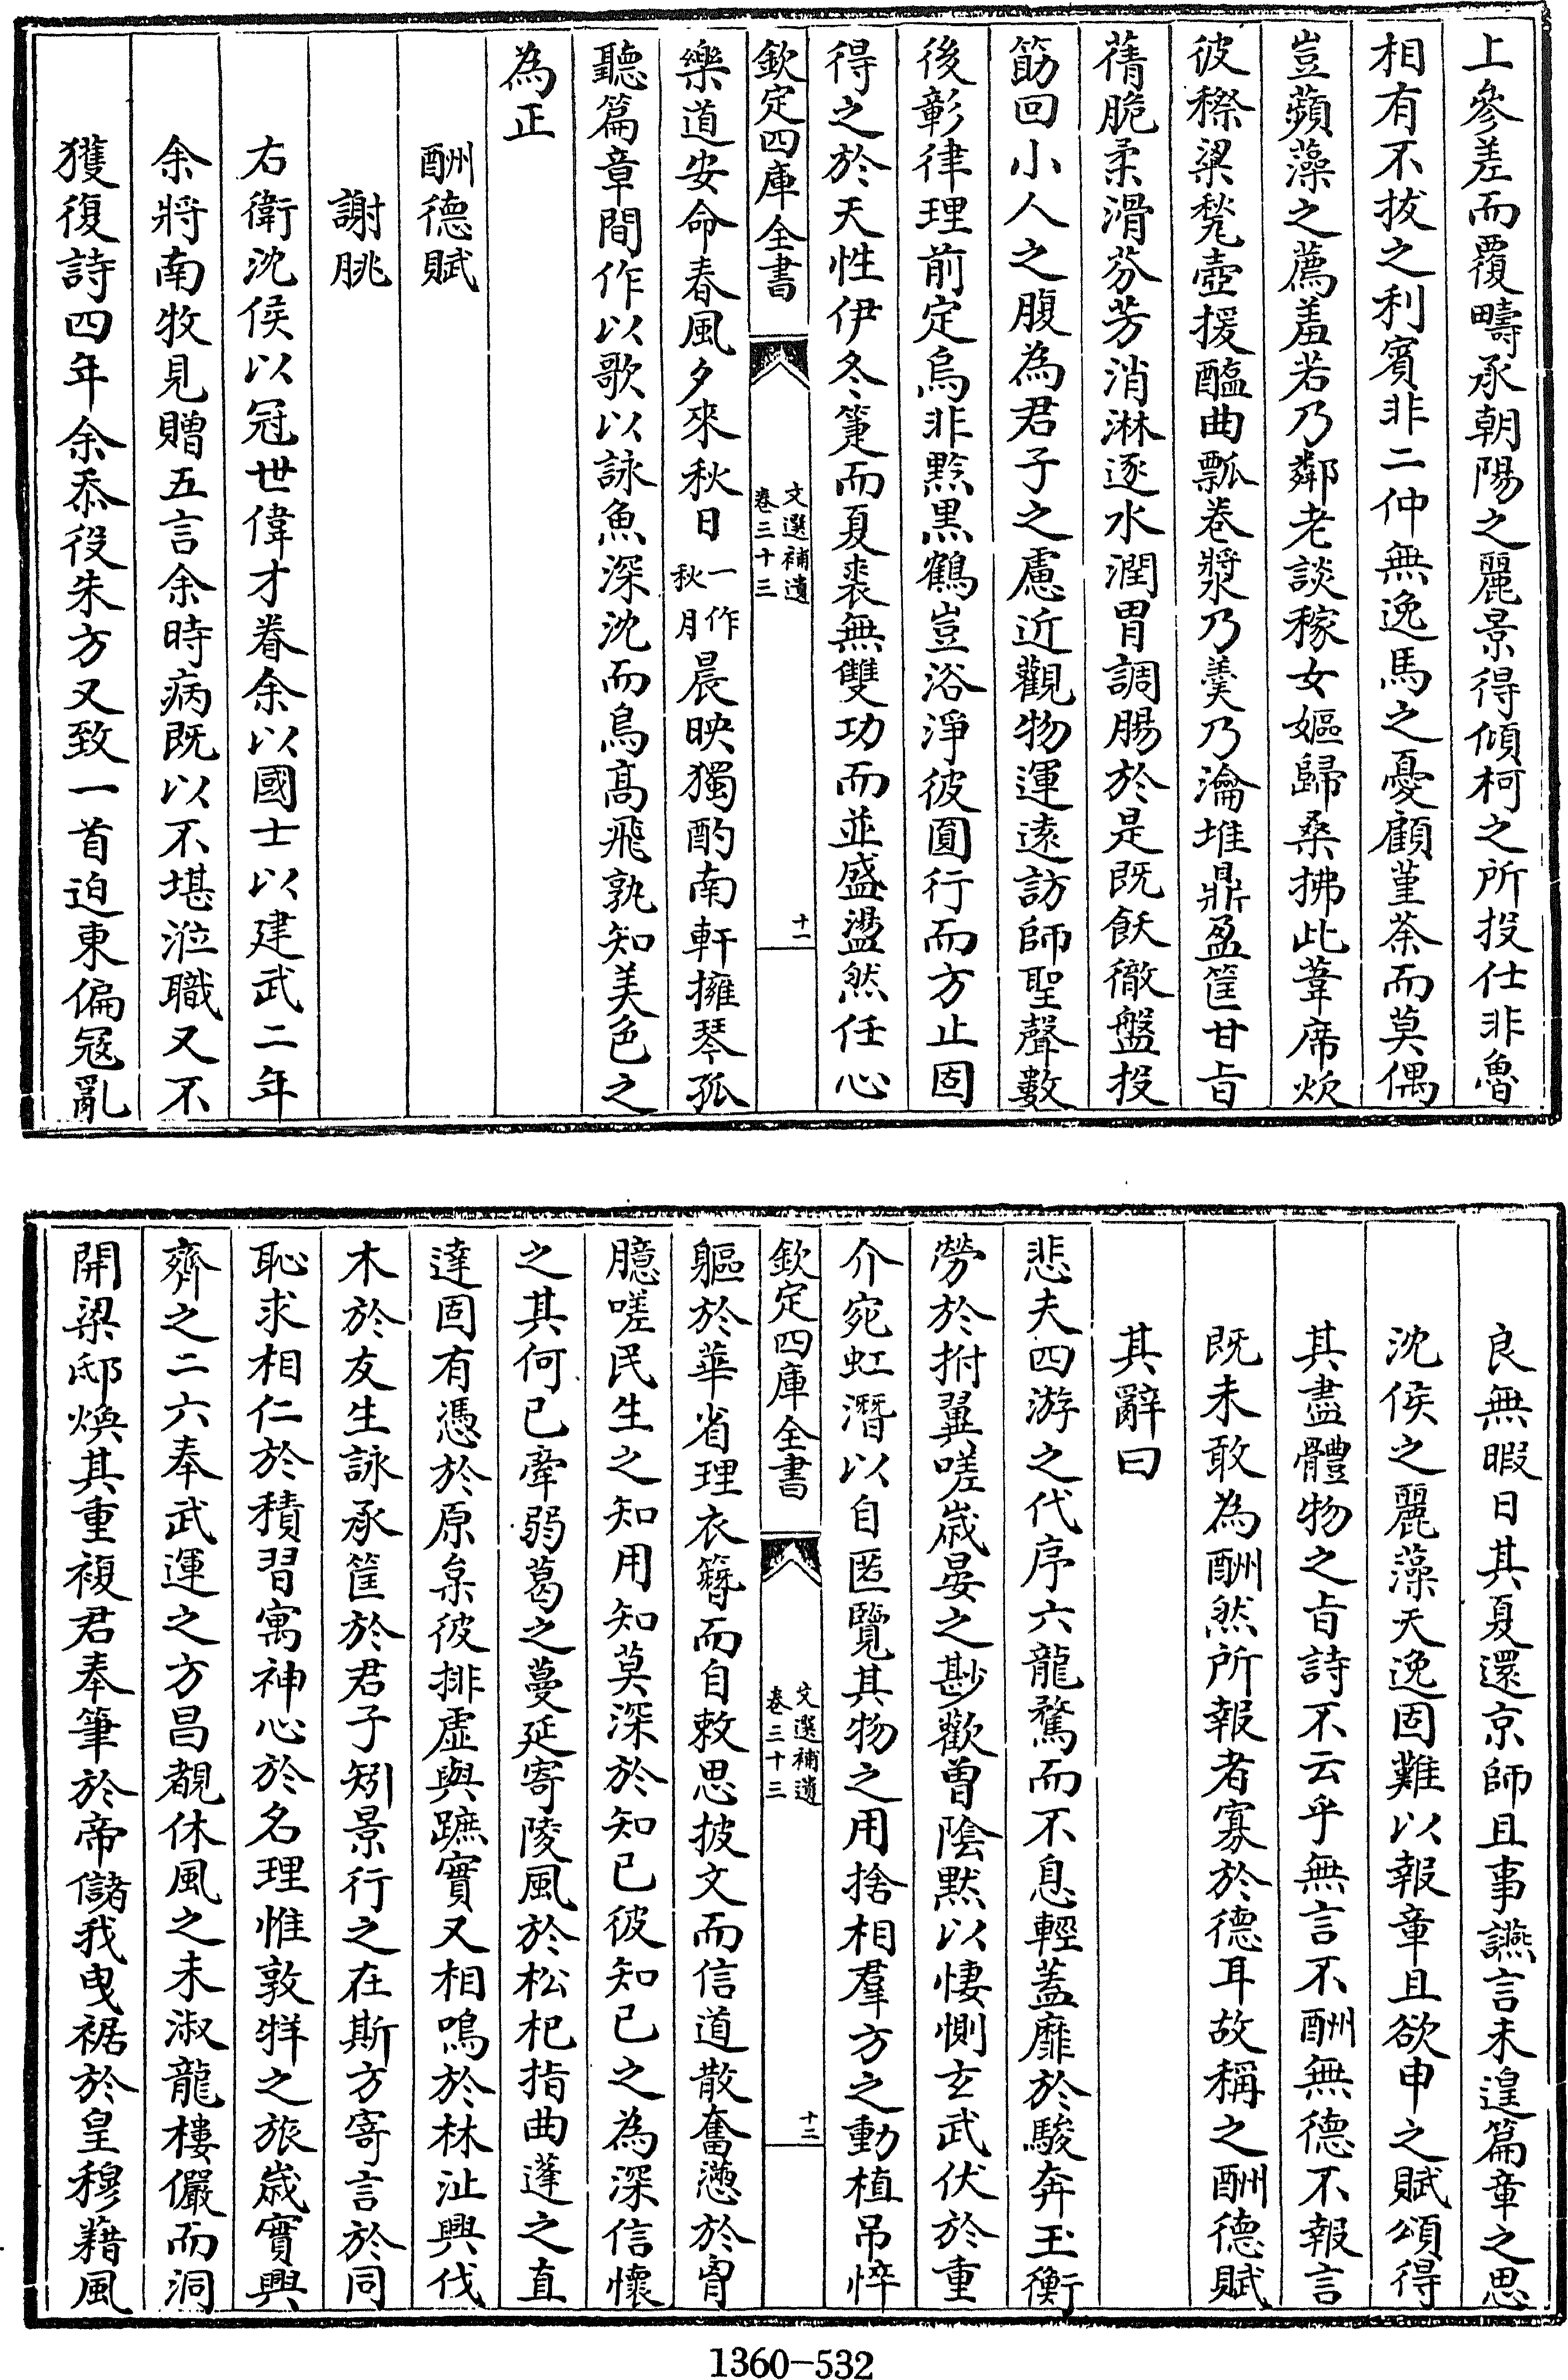 上參差而覆疇承朝陽之麗景得傾柯之所投仕非魯
相有不拔之利賓非二仲無逸馬之憂顧堇荼而莫偶
豈蘋藻之薦羞若乃鄰老談稼女嫗歸桑拂此葦席炊
彼穄粱甃壺援醢曲瓢卷漿乃羮乃瀹堆鼎盈筐甘㫖
蒨脆柔滑芬芳消淋逐水潤胃調腸於是既飫徹盤投
筯回小人之腹為君子之慮近觀物運逺訪師聖聲數
後彰律理前定烏非黔黒鶴豈浴淨彼圎行而方止固
得之於天性伊冬箑而夏裘無雙功而並盛盪然任心
欽定四庫全書
文選補遺
卷三十三
十一
樂道安命春風夕來秋日一作秋月晨映獨酌南軒擁琴孤
聽篇章間作以歌以詠魚深沈而鳥髙飛孰知美色之
為正
酬德賦
謝朓
右衛沈侯以冠世偉才眷余以國士以建武二年
余將南牧見贈五言余時病既以不堪涖職又不
獲復詩四年余忝役朱方又致一首迫東偏冦亂
良無暇日其夏還京師且事讌言未遑篇章之思
沈侯之麗藻天逸固難以報章且欲申之賦頌得
其盡體物之㫖詩不云乎無言不酬無德不報言
既未敢為酬然所報者寡於德耳故稱之酬德賦
其辭曰
悲夫四游之代序六龍騖而不息輕蓋靡於駿奔玉衡
勞於拊翼嗟嵗晏之尠歡曽隂黙以悽惻玄武伏於重
介宛虹潛以自匿覽其物之用捨相羣方之動植吊悴
欽定四庫全書
文選補遺
卷三十三
十二
軀於華省理衣簪而自敕思披文而信道散奮懣於胷
臆嗟民生之知用知莫深於知已彼知已之為深信懷
之其何已牽弱葛之蔓延寄陵風於松杞指曲蓬之直
達固有憑於原枲彼排虚與蹠實又相鳴於林沚興伐
木於友生詠承筐於君子矧景行之在斯方寄言於同
恥求相仁於積習寓神心於名理惟敦牂之旅嵗實興
齊之二六奉武運之方昌覩休風之未淑龍樓儼而洞
開梁邸煥其重複君奉筆於帝儲我曵裾於皇穆藉風
1360-532